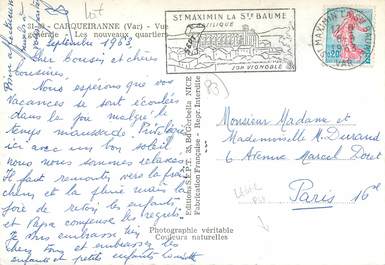 107
31-38 - CARQUEIRANNE (Var) - Vue
générale - Les nouveaux quartiers
Septembre 1963
Cher Cousin et chères
cousines.
Nous espérons que vos
Vacances se sont écoulées
dans la joie malgré le
temps maussade.
ici avec un bon soleil
nous nous sommes relaxés.
Il faut remonter vers la fraî-
cheur et la pluie mais la
joie de revoir les enfants
et Papa compense les regrets.
Je vous embrasse
Chers tous et embrassez les
enfants et petits enfants
Bien affectueusement
Editions S.E.P.T. A. Bd Gorbella NICE
Fabrication Française - Repr Interdite
Photographie véritable
Couleurs naturelles
ST MAXIMIN LA STE BAUME
BASILIQUE
SON VIGNOBLE
ST MAXIMIN LA STE BAUME
VAR
1963
0,20
(83)
Monsieur Madame et
Mademoiselle M. Durand
6 Avenue Marcel Doret
Paris 16e